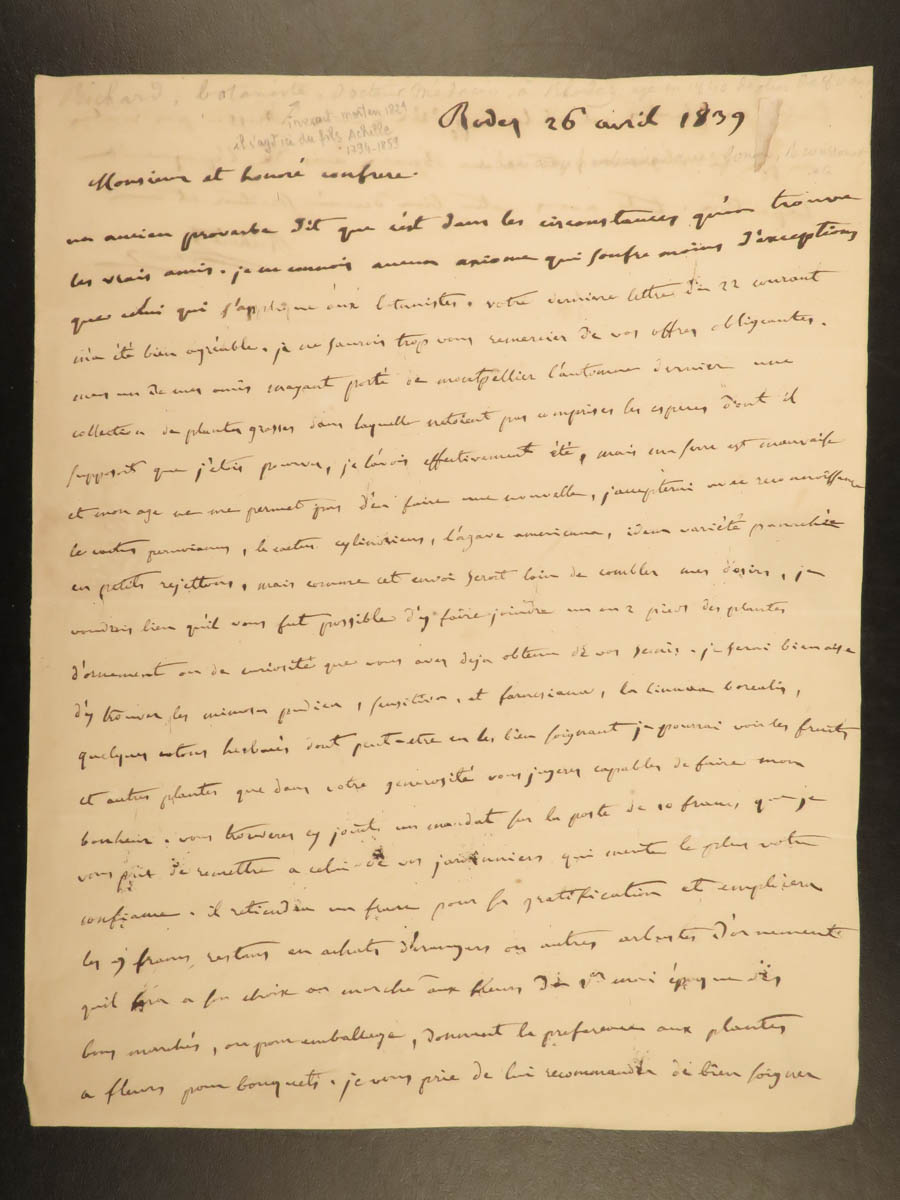 Richard, botaniste, Docteur Médecin, à Rodez
mort en 1821
il s'agit ici du fils Achille
1794-1852
Rodez 26 avril 1839
Monsieur et honoré confrere.
un ancien proverbe dit que c'est dans les circonstances qu'on trouve
les vrais amis. je ne connois aucun axiome qui soufre moins d'exceptions
que celui qui s'applique aux botanistes. votre derniere lettre du 22 courant
m'a été bien agréable. je ne saurois trop vous remercier de vos offres obligeantes.
mais un de mes amis m'ayant porté de montpellier l'automne dernier une
collection de plantes grasses dans laquelle n'etoient pas comprises les especes dont il
supposoit que j'étois pourvu, je l'avois effectivement été, mais ma serre est mauvaise
et mon age ne me permet pas d'en faire une nouvelle, j'accepterai avec reconnoissance
le cactus peruvianus, le cactus cylindricus, l'agave americana, idem variété panachée
en petits rejettons, mais comme cet envoi seroit loin de combler mes desirs, je
voudrois bien qu'il vous fut possible d'y faire joindre un ou 2 pieds des plantes
d'ornement ou de curiosité que vous avez deja obtenu de vos semis. je serai bien aise
d'y trouver les mimosa pudica, sensitiva, et farnesiana, la linnaea borealis,
quelques cotons herbacés dont peut-etre en les bien soignant je pourrai voir les fruits
et autres plantes que dans votre generosité vous jugerez capables de faire mon
bonheur. vous trouverez cy joint un mandat sur la poste de 10 francs, que je
vous prie de remettre a celui de vos jardinniers qui merite le plus votre
confiance. il retiendra un franc pour sa gratification et emploiera
les 9 francs restans en achats d'orangers ou autres arbustes d'ornement
qu'il fera a son choix au marché aux fleurs du 1er mai époque des
bons marchés, ou pour emballage, donnant la preference aux plantes
a fleurs pour bouquets. je vous prie de lui recommander de bien soigner